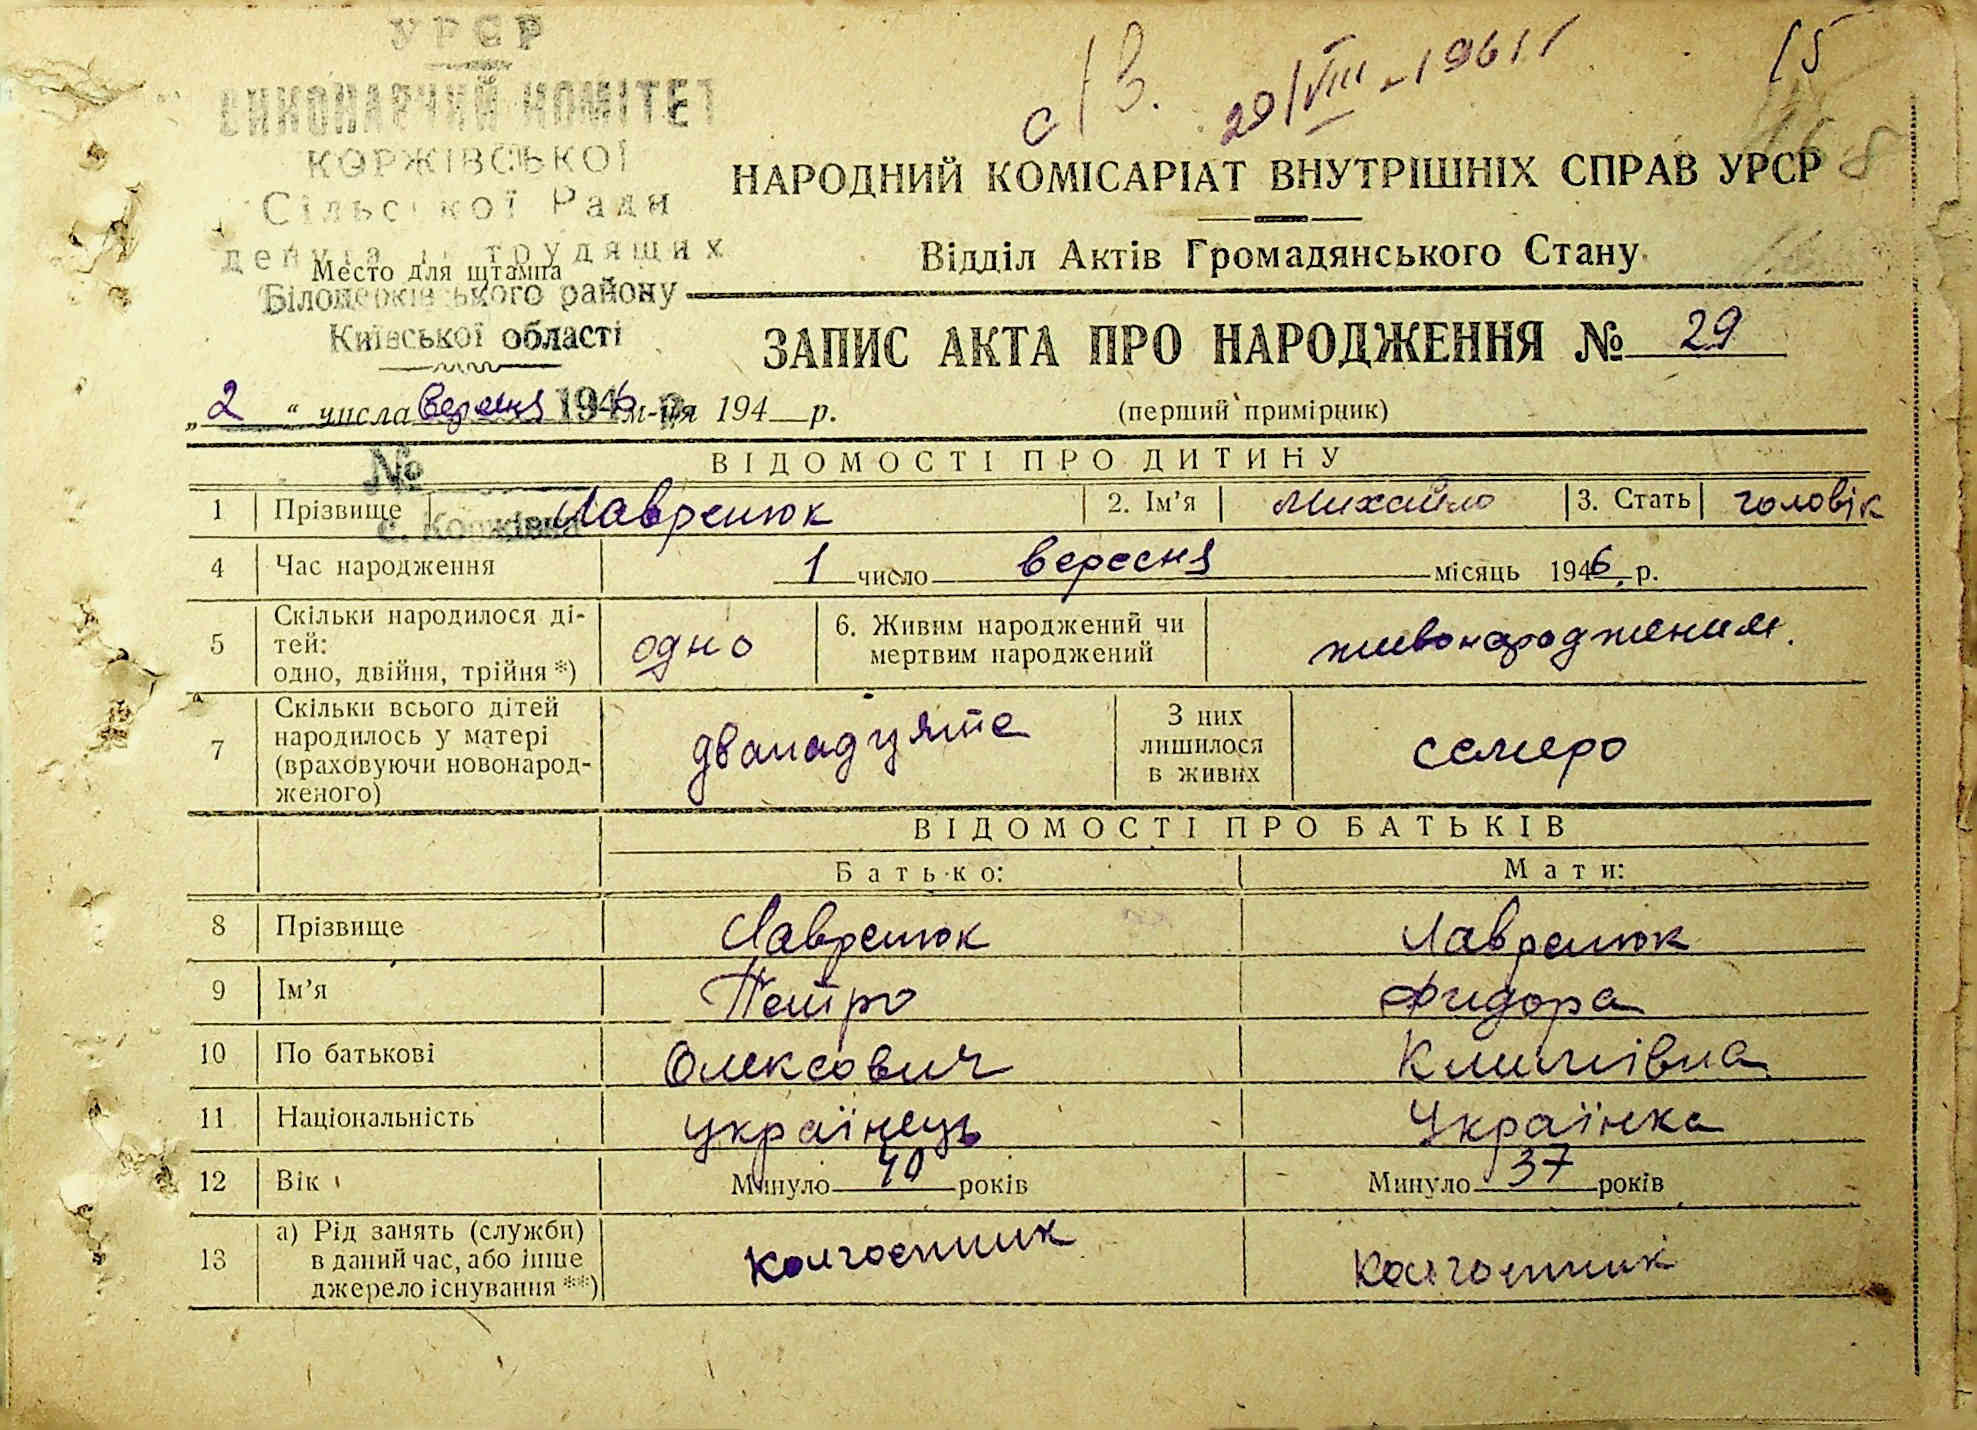 УРСР
ВИКОНАВЧИЙ КОМІТЕТ
КОРЖІВСЬКОЇ
Сільської Ради
депутатів трудящих
Место для штампа
Білоцерківського району
Київської області
с/в. 29/VIII-1961 г
15
НАРОДНИЙ КОМІСАРІАТ ВНУТРІШНІХ СПРАВ УРСР
Відділ Актів Громадянського Стану
ЗАПИС АКТА ПРО НАРОДЖЕННЯ № 29
(перший примірник)
„2“ числа вересня 1946 м-ця 194 р.
№
с. Коржівка
ВІДОМОСТІ ПРО ДИТИНУ
1 Прізвище Лавренюк 2. Ім’я Михайло 3. Стать чоловік
4 Час народження 1 число вересня місяць 1946 р.
5 Скільки народилося ді-
тей:
одно, двійня, трійня *) одно 6. Живим народжений чи
мертвим народжений живонародженим.
7 Скільки всього дітей
народилось у матері
(враховуючи новонарод-
женого) дванадцяте З них
лишилося
в живих семеро
ВІДОМОСТІ ПРО БАТЬКІВ
Батько: Мати:
8 Прізвище Лавренюк Лавренюк
9 Ім’я Петро Фидора
10 По батькові Олексович Климівна
11 Національність українець Українка
12 Вік Минуло 40 років Минуло 37 років
13 а) Рід занять (служби)
в даний час, або інше
джерело існування **) колгоспник колгоспник